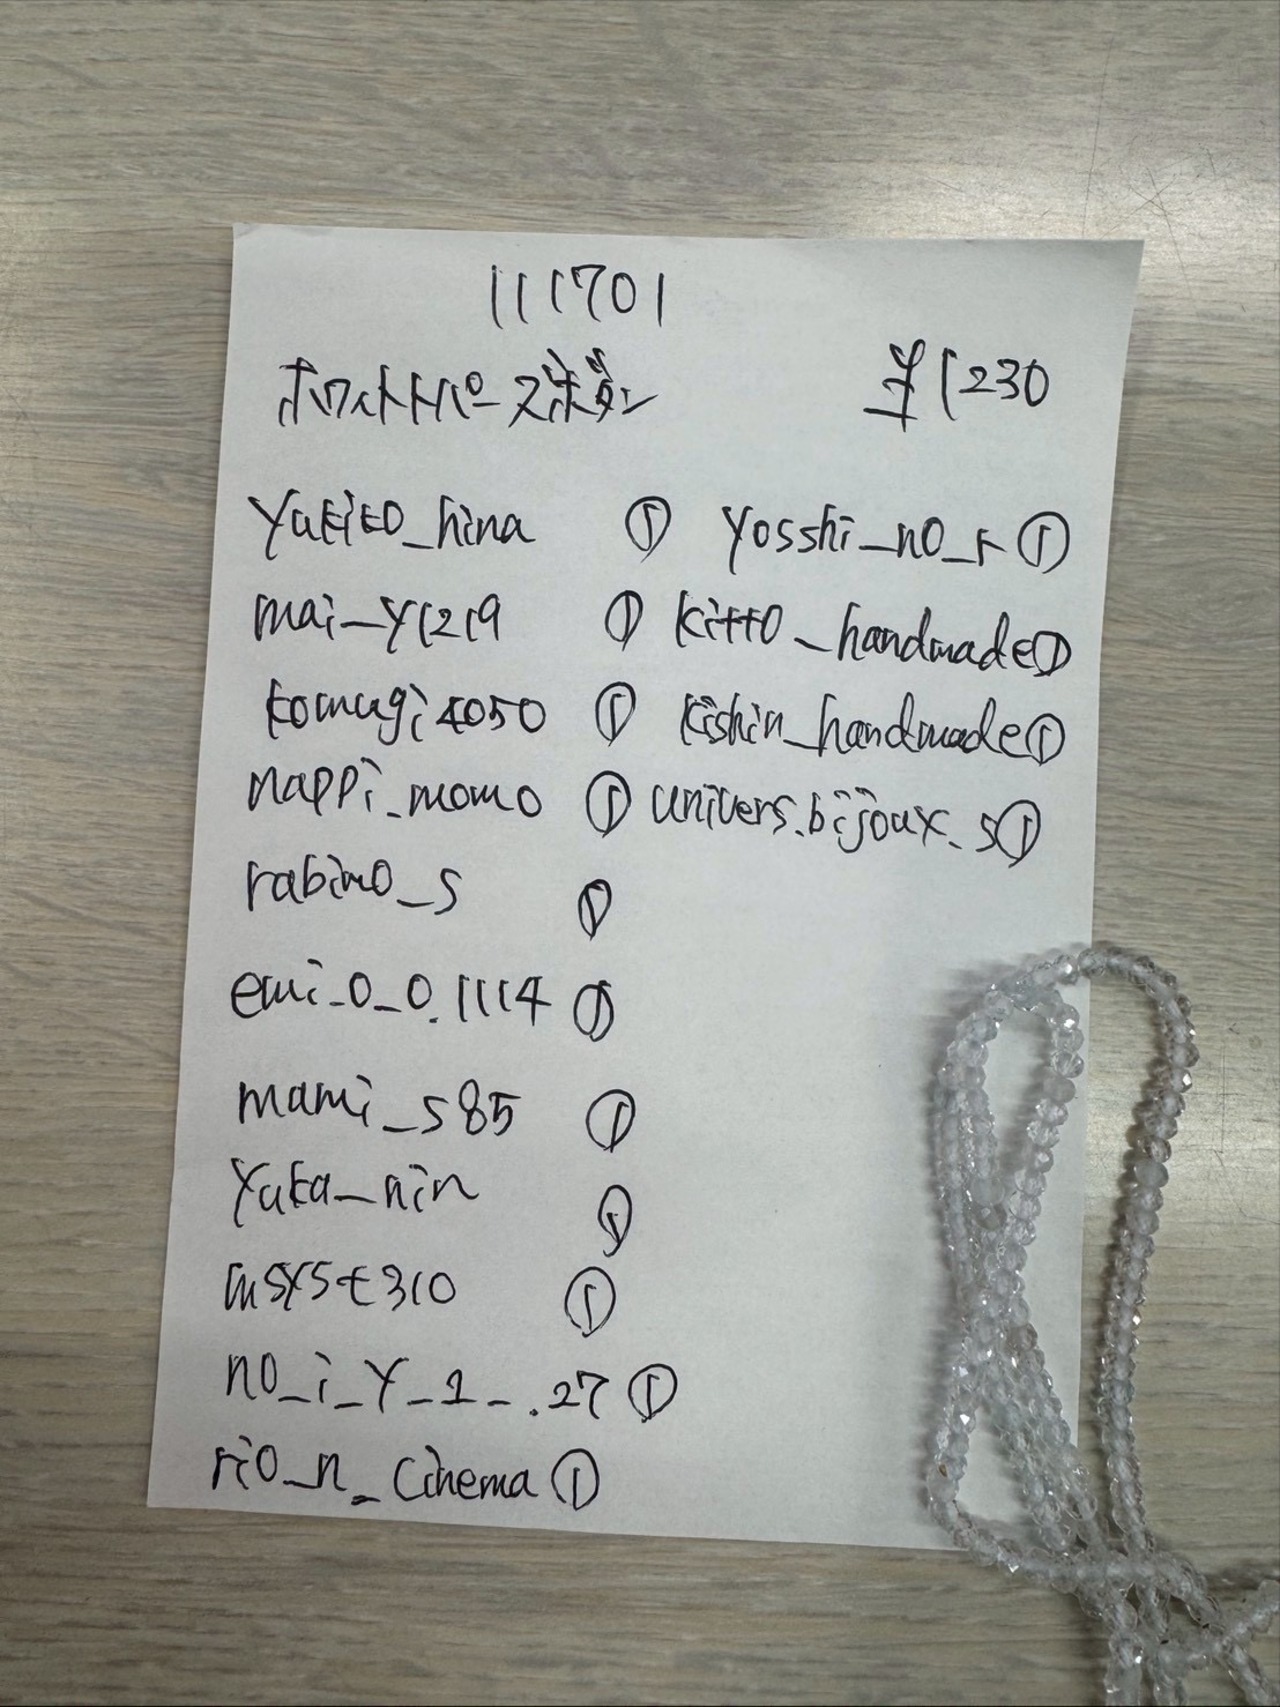 111701
ホワイトトパーズボタン
¥1230
yukito_hina ①
mai_y1219 ①
komugi4050 ①
nappi_momo ①
rabimo_s ①
emi_o_o.1114 ①
mami_s85 ①
yuka_nin ①
msyst310 ①
no_i_y_1_.27 ①
rio_n_cinema ①
yosshi_no_r ①
kitto_handmade ①
kishin_handmade ①
univers.bijoux_s ①